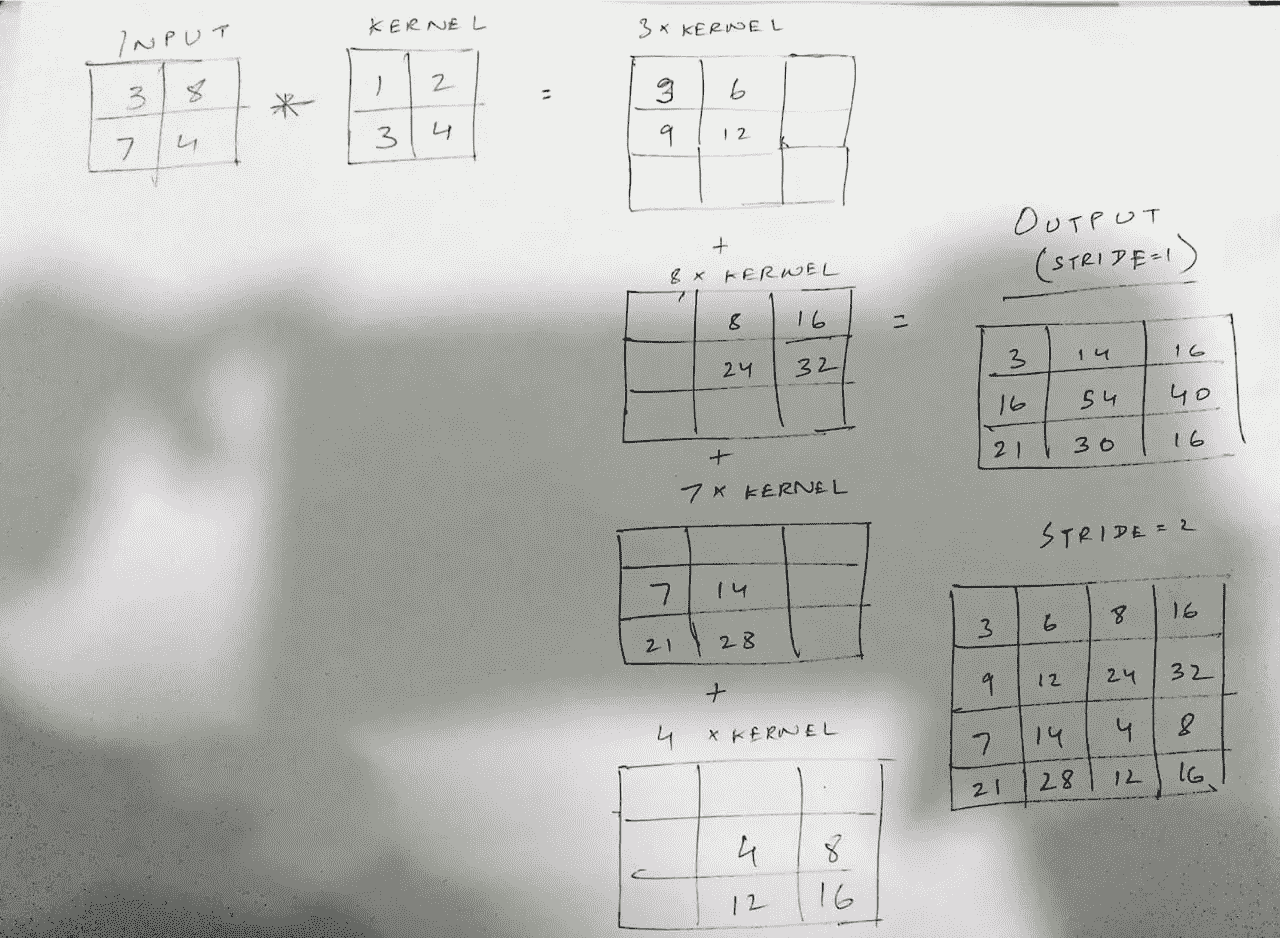 INPUT
3 8
7 4
*
KERNEL
1 2
3 4
=
3 x KERNEL
3 6
9 12
+
8 x KERNEL
8 16
24 32
+
7 x KERNEL
7 14
21 28
+
4 x KERNEL
4 8
12 16
=
OUTPUT
(STRIDE=1)
3 14 16
16 54 40
21 30 16
STRIDE = 2
3 6 8 16
9 12 24 32
7 14 4 8
21 28 12 16